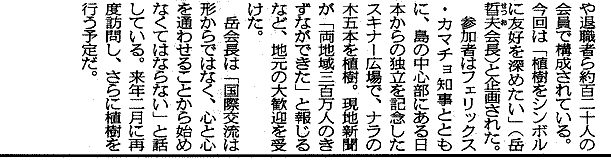 や退職者ら約百二十人の
会員で構成されている。
今回は「植樹をシンボル
に友好を深めたい」(岳
哲夫会長)と企画された。
　参加者はフェリックス
・カマチョ知事ととも
に、島の中心部にある日
本からの独立を記念した
スキナー広場で、ナラの
木五本を植樹。現地新聞
が「両地域三百万人のき
ずなができた」と報じる
など、地元の大歓迎を受
けた。
　岳会長は「国際交流は
形からではなく、心と心
を通わせることから始め
なくてはならない」と話
している。来年二月に再
度訪問し、さらに植樹を
行う予定だ。